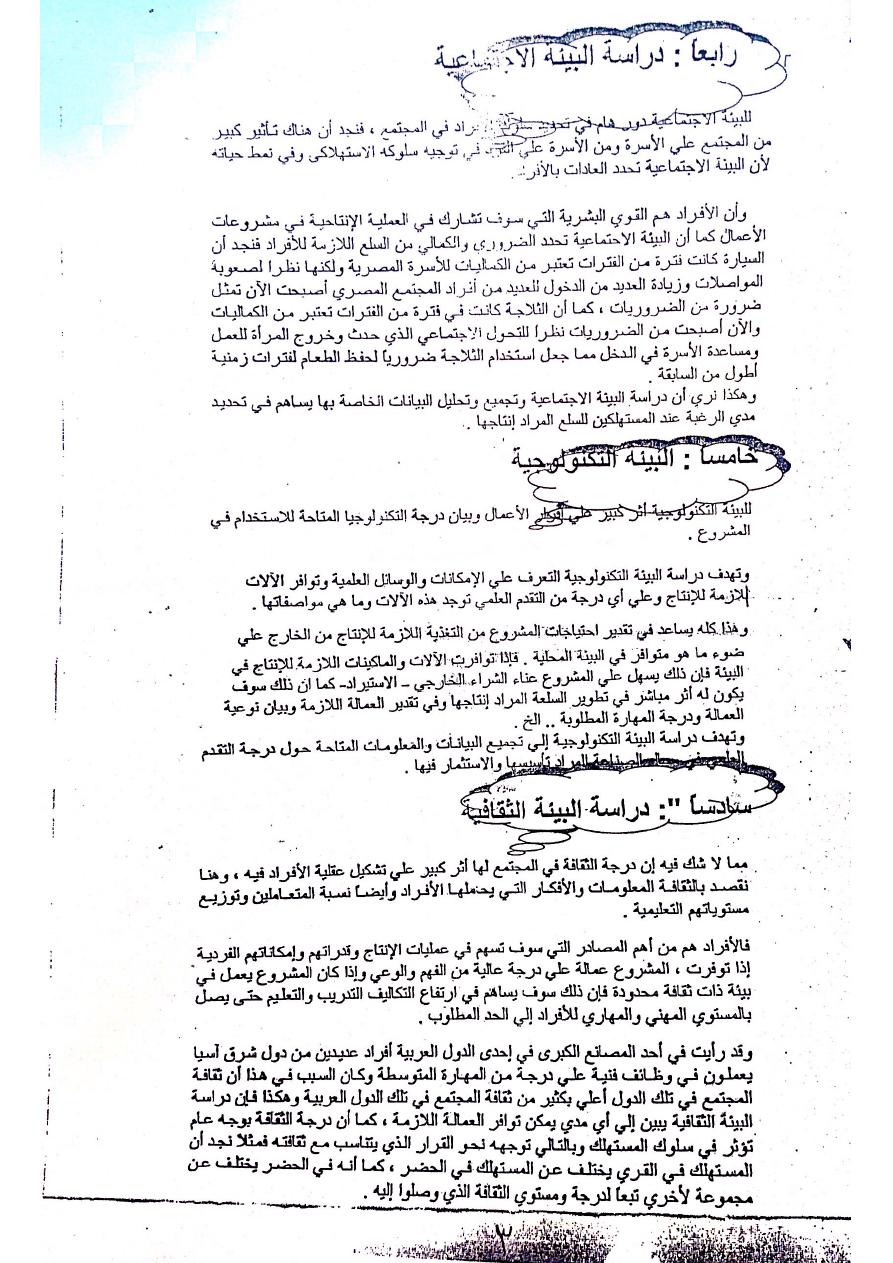 رابعاً : دراسة البيئة الاجتماعية
للبيئة الاجتماعية دور هام في تحديد سلوك الأفراد في المجتمع ، فنجد أن هناك تأثير كبير
من المجتمع علي الأسرة ومن الأسرة علي الفرد في توجيه سلوكه الاستهلاكى وفي نمط حياته
لأن البيئة الاجتماعية تحدد العادات
وأن الأفراد هم القوي البشرية التي سوف تشارك في العملية الإنتاجية في مشروعات
الأعمال كما أن البيئة الاجتماعية تحدد الضروري والكمالي من السلع اللازمة للأفراد فنجد أن
السيارة كانت فترة من الفترات تعتبر من الكماليات للأسرة المصرية ولكنها نظرا لصعوبة
المواصلات وزيادة العديد من الدخول للعديد من أفراد المجتمع المصري أصبحت الآن تمثل
ضرورة من الضروريات ، كما أن الثلاجة كانت في فترة من الفترات تعتبر من الكماليات
والآن أصبحت من الضروريات نظراً للتحول الاجتماعي الذي حدث وخروج المرأة للعمل
ومساعدة الأسرة في الدخل مما جعل استخدام الثلاجة ضرورياً لحفظ الطعام لفترات زمنية
أطول من السابقة .
وهكذا نري أن دراسة البيئة الاجتماعية وتجميع وتحليل البيانات الخاصة بها يساهم في تحديد
مدي الرغبة عند المستهلكين للسلع المراد إنتاجها .
خامساً : البيئة التكنولوجية
للبيئة التكنولوجية أثر كبير علي الأعمال وبيان درجة التكنولوجيا المتاحة للاستخدام في
المشروع .
وتهدف دراسة البيئة التكنولوجية التعرف علي الإمكانات والوسائل العلمية وتوافر الآلات
اللازمة للإنتاج وعلي أي درجة من التقدم العلمي توجد هذه الآلات وما هي مواصفاتها .
وهذا كله يساعد في تقدير احتياجات المشروع من التغذية اللازمة للإنتاج من الخارج علي
ضوء ما هو متوافر في البيئة المحلية . فإذا توافرت الآلات والماكينات اللازمة للإنتاج في
البيئة فإن ذلك يسهل علي المشروع عناء الشراء الخارجي – الاستيراد- كما ان ذلك سوف
يكون له أثر مباشر في تطوير السلعة المراد إنتاجها وفي تقدير العمالة اللازمة وبيان نوعية
العمالة ودرجة المهارة المطلوبة .. الخ .
وتهدف دراسة البيئة التكنولوجية إلي تجميع البيانات والمعلومات المتاحة حول درجة التقدم
العلمي في مجال الصناعة المراد تأسيسها والاستثمار فيها .
سادساً ": دراسة البيئة الثقافية
مما لا شك فيه إن درجة الثقافة في المجتمع لها أثر كبير علي تشكيل عقلية الأفراد فيه ، وهنا
نقصد بالثقافة المعلومات والأفكار التي يحملها الأفراد وأيضاً نسبة المتعاملين وتوزيع
مستوياتهم التعليمية .
فالأفراد هم من أهم المصادر التي سوف تسهم في عمليات الإنتاج وقدراتهم وإمكاناتهم الفردية
إذا توفرت ، المشروع عمالة علي درجة عالية من الفهم والوعي وإذا كان المشروع يعمل في
بيئة ذات ثقافة محدودة فإن ذلك سوف يساهم في ارتفاع التكاليف التدريب والتعليم حتى يصل
بالمستوي المهني والمهاري للأفراد إلي الحد المطلوب .
وقد رأيت في أحد المصانع الكبرى في إحدى الدول العربية أفراد عديدين من دول شرق آسيا
يعملون في وظائف فنية علي درجة من المهارة المتوسطة وكان السبب في هذا أن ثقافة
المجتمع في تلك الدول أعلي بكثير من ثقافة المجتمع في تلك الدول العربية وهكذا فإن دراسة
البيئة الثقافية يبين إلي أي مدي يمكن توافر العمالة اللازمة ، كما أن درجة الثقافة بوجه عام
تؤثر في سلوك المستهلك وبالتالي توجهه نحو القرار الذي يتناسب مع ثقافته فمثلا نجد أن
المستهلك في القري يختلف عن المستهلك في الحضر ، كما أنه في الحضر يختلف عن
مجموعة لأخري تبعاً لدرجة ومستوي الثقافة الذي وصلوا إليه .
٣